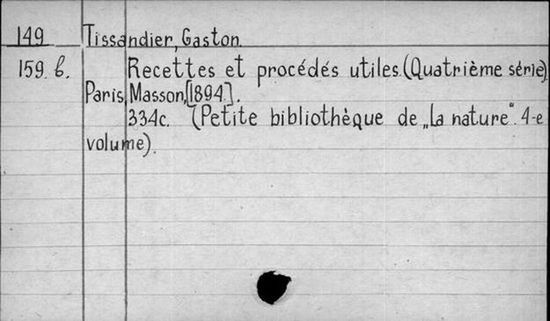 149 Tissandier, Gaston.
159. b. Recettes et procédés utiles. (Quatrième série)
Paris, Masson, [1894].
334c. (Petite bibliothèque de „La nature“. 4-e
volume).